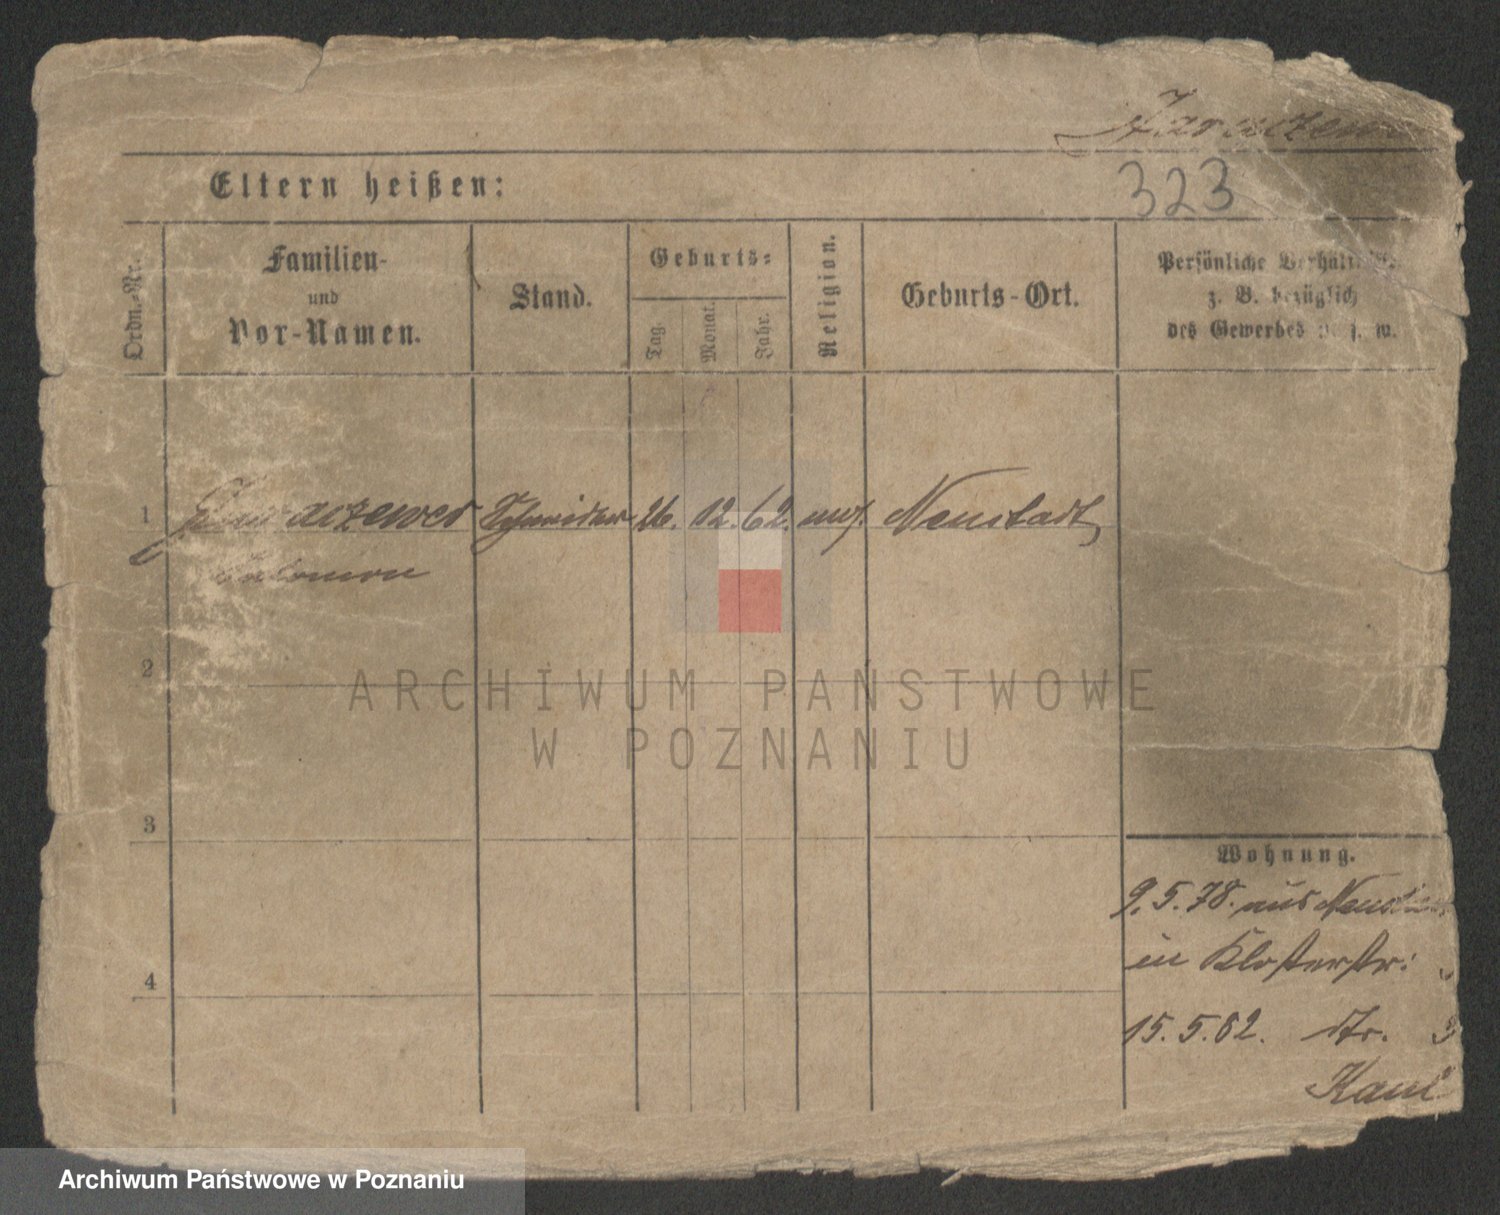 323
Eltern heißen:
Ordn.-Nr.
Familien-
und
Vor-Namen.
Stand.
Geburts-
Tag.
Monat.
Jahr.
Religion.
Geburts-Ort.
Persönliche
z. B. bezüglich
des Gewerbes u. s. w.
1
Schneider 26. 12. 62. mos. Neustadt
Salomon
2
3
4
Wohnung.
9.5.78. aus
in Klosterstr.
15.5.82. str.
ARCHIWUM PAŃSTWOWE
W POZNANIU
Archiwum Państwowe w Poznaniu